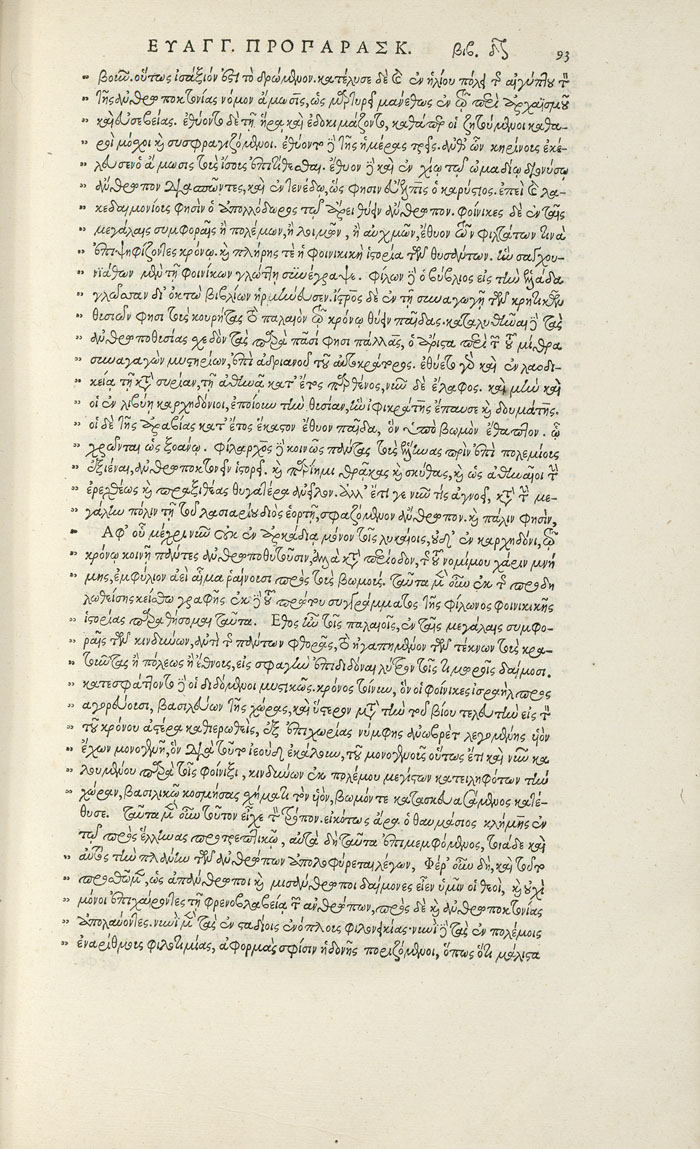 ΕΥΑΓΓ. ΠΡΟΠΑΡΑΣΚ. βιβ. δ 93
βοιῶν. οὕτως ἰσάξιόν ἐστι τὸ δρώμενον. κατέλυσε δὲ καὶ ἐν ἡλίου πόλει τῆς αἰγύπτου τὸν
τῆς ἀνθρωποκτονίας νόμον ἄμωσις, ὡς μαρτυρεῖ μανέθως ἐν τῷ περὶ ἀρχαϊσμοῦ
καὶ εὐσεβείας. ἐθύοντο δὲ τῇ ἥρᾳ καὶ ἐδοκιμάζοντο, καθάπερ οἱ ζητούμενοι καθα-
ροὶ μόσχοι καὶ συσφραγιζόμενοι. ἐθύοντο δὲ τῆς ἡμέρας τρεῖς. ἀνθ' ὧν κηρίνους ἐκέ-
λευσεν ὁ ἄμωσις τοὺς ἴσους ἐπιτίθεσθαι. ἔθυον δὲ καὶ ἐν χίῳ τῷ ὠμαδίῳ διονύσῳ
ἄνθρωπον διασπῶντες, καὶ ἐν τενέδῳ, ὥς φησιν εὔελπις ὁ καρύστιος. ἐπεὶ καὶ λα-
κεδαιμονίους φησὶν ὁ ἀπολλόδωρος τῷ ἄρει θύειν ἄνθρωπον. φοίνικες δὲ ἐν ταῖς
μεγάλαις συμφοραῖς ἢ πολέμων, ἢ λοιμῶν, ἢ αὐχμῶν, ἔθυον τῶν φιλτάτων τινὰ
ἐπιψηφίζοντες κρόνῳ. καὶ πλήρης δὲ ἡ φοινικικὴ ἱστορία τῶν θυσάντων. ἣν σαγχου-
νιάθων μὲν τῇ φοινίκων γλώττῃ συνέγραψε. φίλων δὲ ὁ βύβλιος εἰς τὴν ἑλλάδα
γλῶσσαν δι' ὀκτὼ βιβλίων ἡρμήνευσεν. ἴστρος δὲ ἐν τῇ συναγωγῇ τῶν κρητικῶν
θυσιῶν φησι τοὺς κουρῆτας τὸ παλαιὸν τῷ κρόνῳ θύειν παῖδας. καταλυθῆναι δὲ τὰς
ἀνθρωποθυσίας σχεδὸν τὰς παρὰ πᾶσί φησι πάλλας, ὁ ἄριστα περὶ τῶν τοῦ μίθρα
συναγαγὼν μυστηρίων, ἐπὶ ἀδριανοῦ τοῦ αὐτοκράτορος. ἐθύετο γὰρ καὶ ἐν λαοδι-
κείᾳ τῇ κατὰ συρίαν, τῇ ἀθηνᾷ κατ' ἔτος παρθένος, νῦν δὲ ἔλαφος. καὶ μὴν καὶ
οἱ ἐν λιβύῃ καρχηδόνιοι, ἐποίουν τὴν θυσίαν, ἣν ἰφικράτης ἔπαυσε. καὶ δουματῆς.
οἱ δὲ τῆς ἀραβίας κατ' ἔτος ἕκαστον ἔθυον παῖδα, ὃν ὑπὸ βωμὸν ἔθαπτον. ᾧ
χρῶνται ὡς ξοάνῳ. φίλαρχος δὲ κοινῶς πάντας τοὺς ἕλληνας πρὶν ἐπὶ πολεμίους
ἐξιέναι, ἀνθρωποκτονεῖν ἱστορεῖ. καὶ παρίημι θρᾷκας καὶ σκύθας, καὶ ὡς ἀθηναῖοι τὴν
ἐρεχθέως καὶ πραξιθέας θυγατέρα ἀνεῖλον. ἀλλ' ἔτι γε νῦν τίς ἀγνοεῖ, κατὰ τὴν με-
γάλην πόλιν τῇ τοῦ λασιαρίου διὸς ἑορτῇ, σφαζόμενον ἄνθρωπον. καὶ πάλιν φησὶν,
Ἀφ' οὗ μέχρι νῦν οὐκ ἐν ἀρκαδίᾳ μόνον τοῖς λυκαίοις, οὐδ' ἐν καρχηδόνι, τῷ
κρόνῳ κοινῇ πάντες ἀνθρωποθυτοῦσιν, ἀλλὰ κατὰ περίοδον, τῆς τοῦ νομίμου χάριν μνή
μης, ἐμφύλιον ἀεὶ αἷμα ῥαίνουσι πρὸς τοὺς βωμούς. Ταῦτα μὲν οὖν ἐκ τῆς προδη
λωθείσης κείσθω γραφῆς. ἐκ δὲ τοῦ πρώτου συγγράμματος τῆς φίλωνος φοινικικῆς
ἱστορίας παραθήσομαι ταῦτα. Ἔθος ἦν τοῖς παλαιοῖς, ἐν ταῖς μεγάλαις συμφο-
ραῖς τῶν κινδύνων, ἀντὶ τῆς πάντων φθορᾶς, τὸ ἠγαπημένον τῶν τέκνων τοὺς κρα-
τοῦντας ἢ πόλεως ἢ ἔθνους, εἰς σφαγὴν ἐπιδιδόναι λύτρον τοῖς τιμωροῖς δαίμοσι.
κατεσφάττοντο δὲ οἱ διδόμενοι μυστικῶς. κρόνος τοίνυν, ὃν οἱ φοίνικες ἰσραὴλ προς
αγορεύουσι, βασιλεύων τῆς χώρας, καὶ ὕστερον μετὰ τὴν τοῦ βίου τελευτὴν εἰς τὸν
τοῦ κρόνου ἀστέρα καθιερωθεὶς, ἐξ ἐπιχωρίας νύμφης ἀνωβρὲτ λεγομένης υἱὸν
ἔχων μονογενῆ, ὃν διὰ τοῦτο ἰεοὺδ ἐκάλουν, τοῦ μονογενοῦς οὕτως ἔτι καὶ νῦν κα
λουμένου παρὰ τοῖς φοίνιξι, κινδύνων ἐκ πολέμου μεγίστων κατειληφότων τὴν
χώραν, βασιλικῷ κοσμήσας σχήματι τὸν υἱὸν, βωμόν τε κατασκευασάμενος κατέ-
θυσε. Ταῦτα μὲν οὖν τοῦτον εἶχε τὸν τρόπον. εἰκότως ἄρα ὁ θαυμάσιος κλήμης ἐν
τῷ πρὸς ἕλληνας προτρεπτικῷ, αὐτὰ δὴ ταῦτα ἐπιμεμφόμενος, τοιάδε καὶ
αὐτὸς τὴν πλάνην τῶν ἀνθρώπων ἀπολοφύρεται λέγων, Φέρ' οὖν δὴ, καὶ τοῦτο
προσθῶμεν, ὡς ἀπάνθρωποι καὶ μισάνθρωποι δαίμονες εἶεν ὑμῖν οἱ θεοὶ, καὶ οὐχὶ
μόνοι ἐπιχαίροντες τῇ φρενοβλαβείᾳ τῶν ἀνθρώπων, πρὸς δὲ καὶ ἀνθρωποκτονίας
ἀπολαύοντες. νυνὶ μὲν τὰς ἐν σταδίοις ἐνόπλους φιλονεικίας. νυνὶ δὲ τὰς ἐν πολέμοις
ἐναρίθμους φιλοτιμίας, ἀφορμὰς σφίσιν ἡδονῆς ποριζόμενοι, ὅπως ὅτι μάλιστα